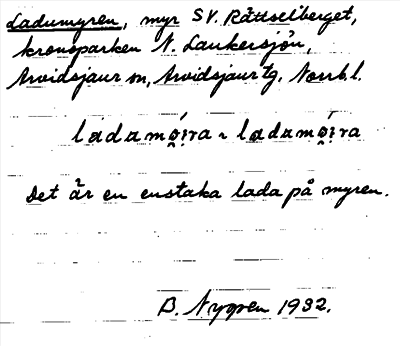 Ladumyren, myr SV. Rättselberget,
kronoparken N. Laukersjön,
Arvidsjaur sn, Arvidsjaur tg. Norrb.l.
ládamǫ́i̯ra ~ ladamǫ́i̯ra
Det är en enstaka lada på myren.
B. Nygren 1932.